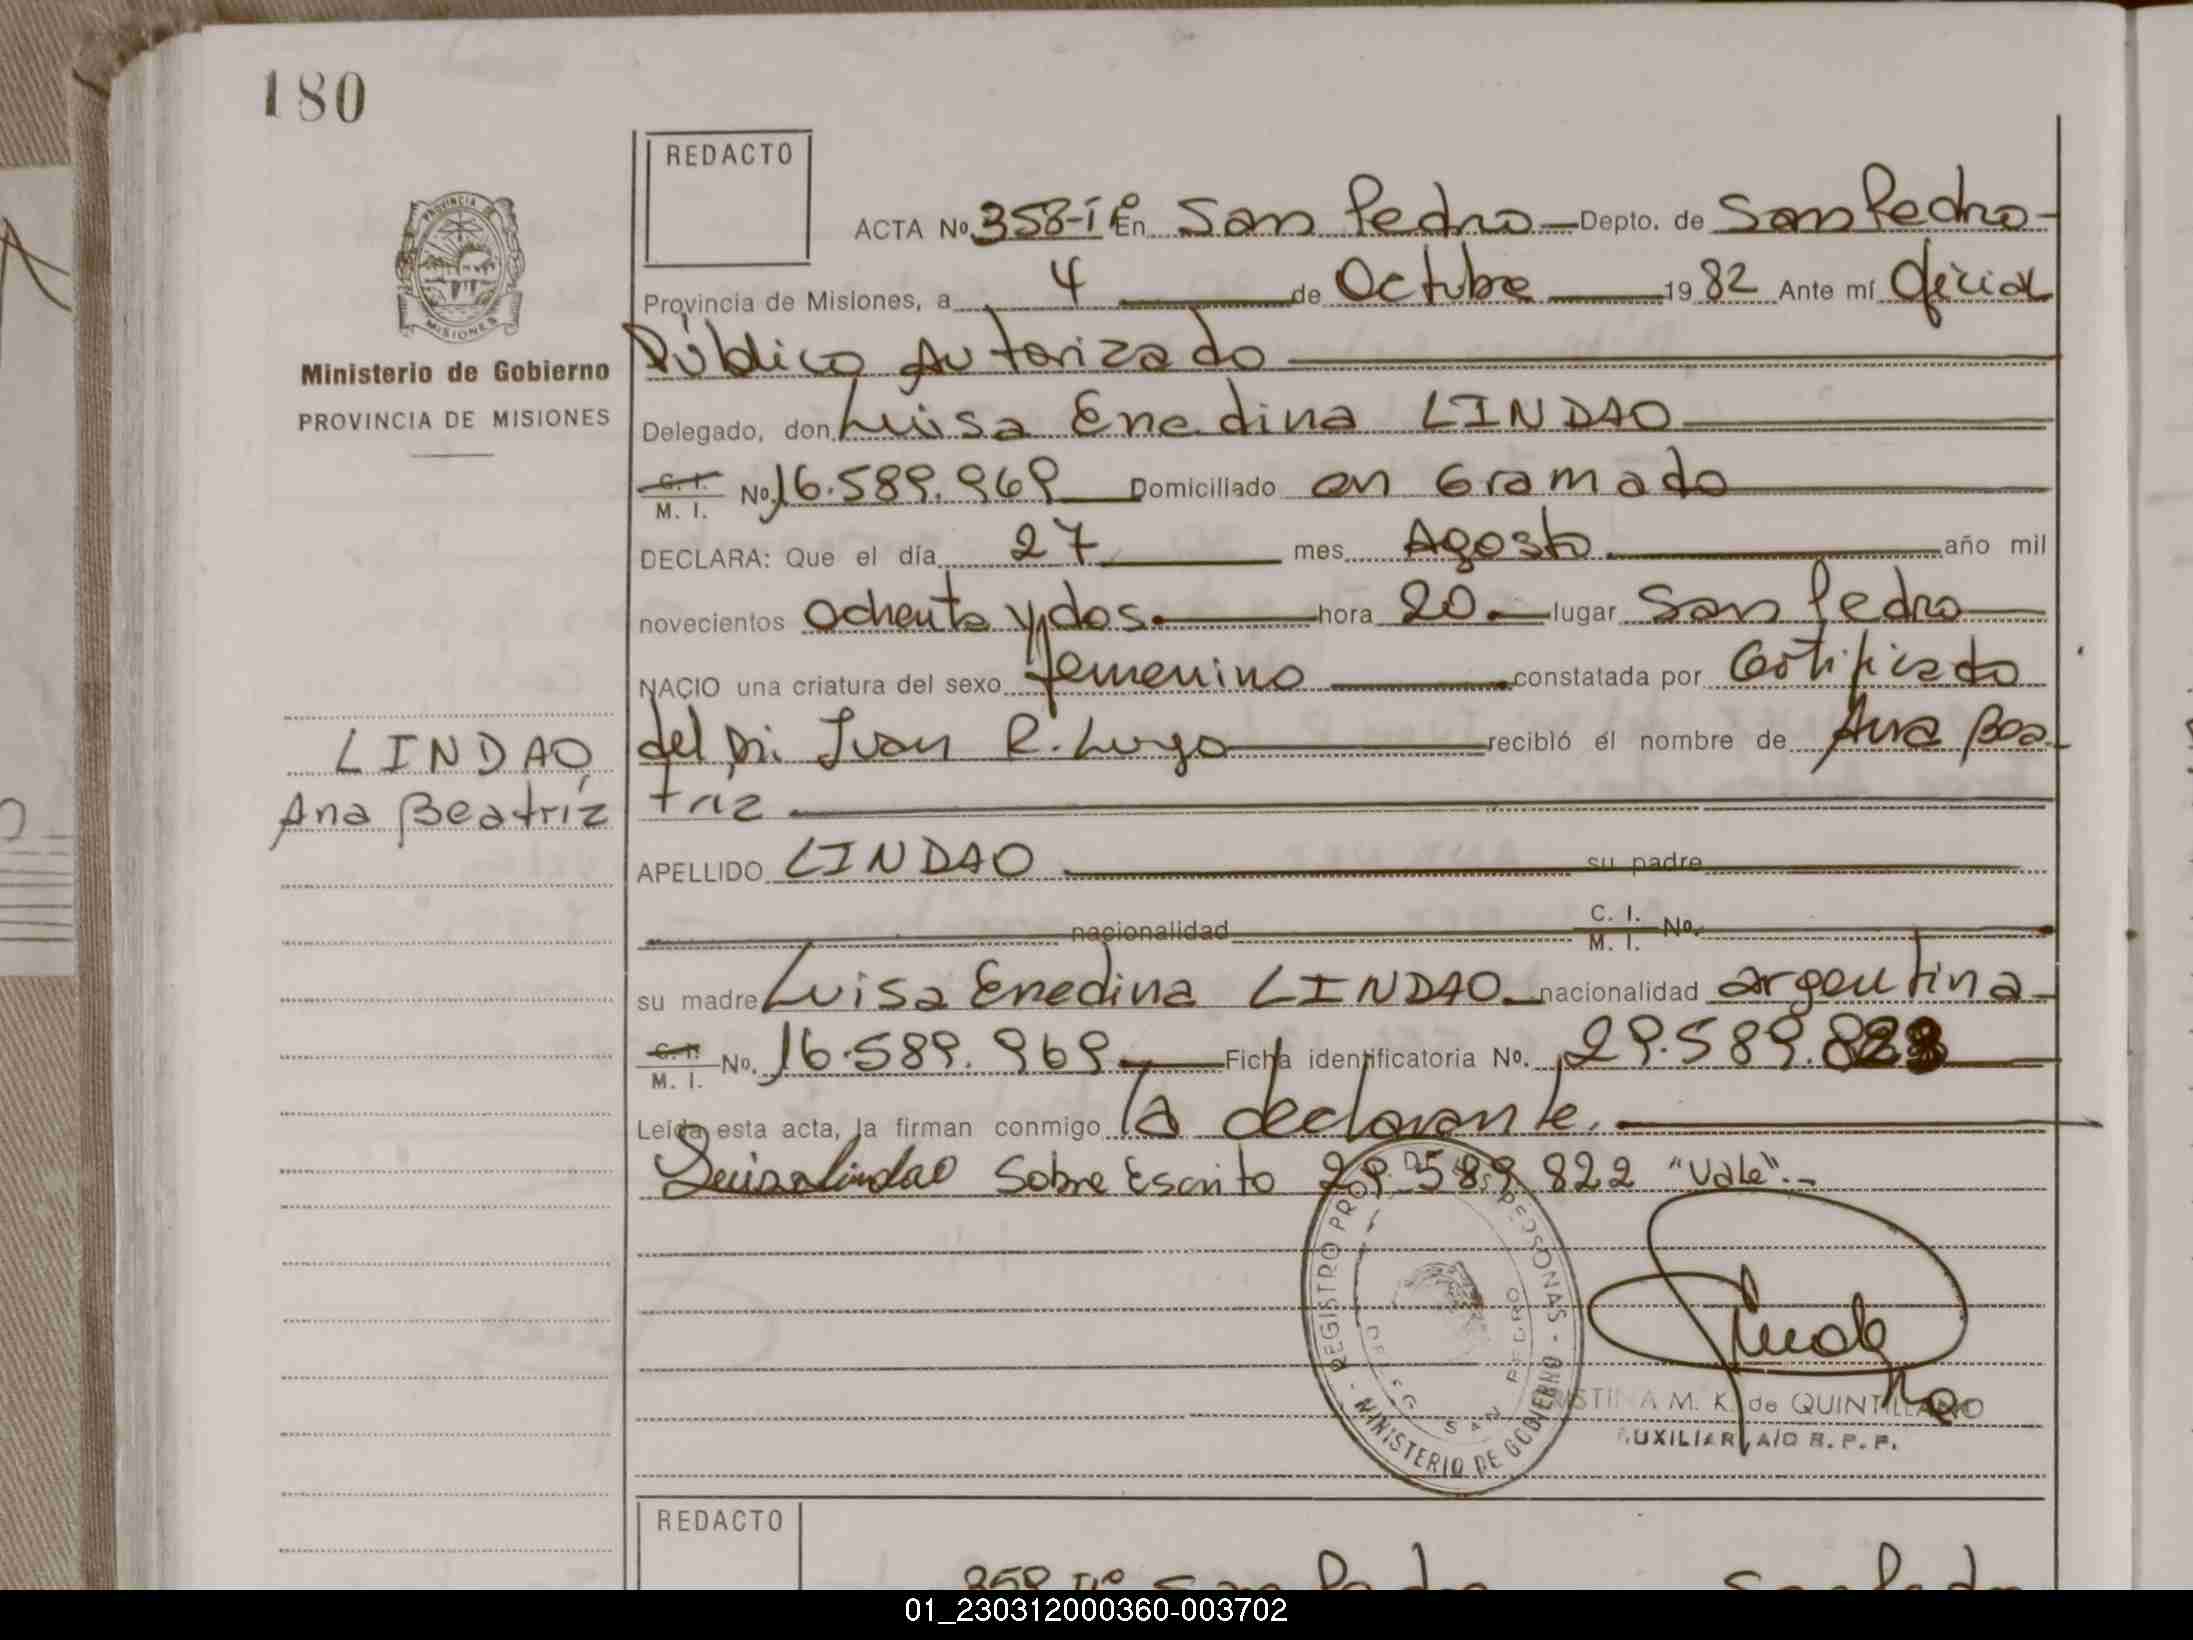 180
REDACTO
ACTA No. 358-Iº En San Pedro Depto. de San Pedro
Provincia de Misiones, a 4 de Octubre 1982 Ante mí Oficial
Público Autorizado
Delegado, don Luisa Enedina LINDAO
C. I. M. I. No. 16.589.969 Domiciliado en Gramado
DECLARA: Que el día 27 mes Agosto año mil
novecientos ochenta y dos. hora 20 lugar San Pedro
NACIO una criatura del sexo femenino constatada por Certificado
del Dr. Juan R. Lugo recibió el nombre de Ana Bea
triz
APELLIDO LINDAO su padre
nacionalidad C. I. M. I. No.
su madre Luisa Enedina LINDAO nacionalidad argentina
C. I. M. I. No. 16.589.969 Ficha identificatoria No. 29.589.822
Leída esta acta, la firman conmigo la declarante.
Luisa Lindao Sobre Escrito 29.589.822 "Vale".-
REGISTRO PERSONAS - MINISTERIO DE GOBIERNO
SAN PEDRO
M. K. de QUINTILLANO
AUXILIAR A/C R. P. P.
PROVINCIA DE
MISIONES
Ministerio de Gobierno
PROVINCIA DE MISIONES
LINDAO,
Ana Beatríz
REDACTO
01_230312000360-003702